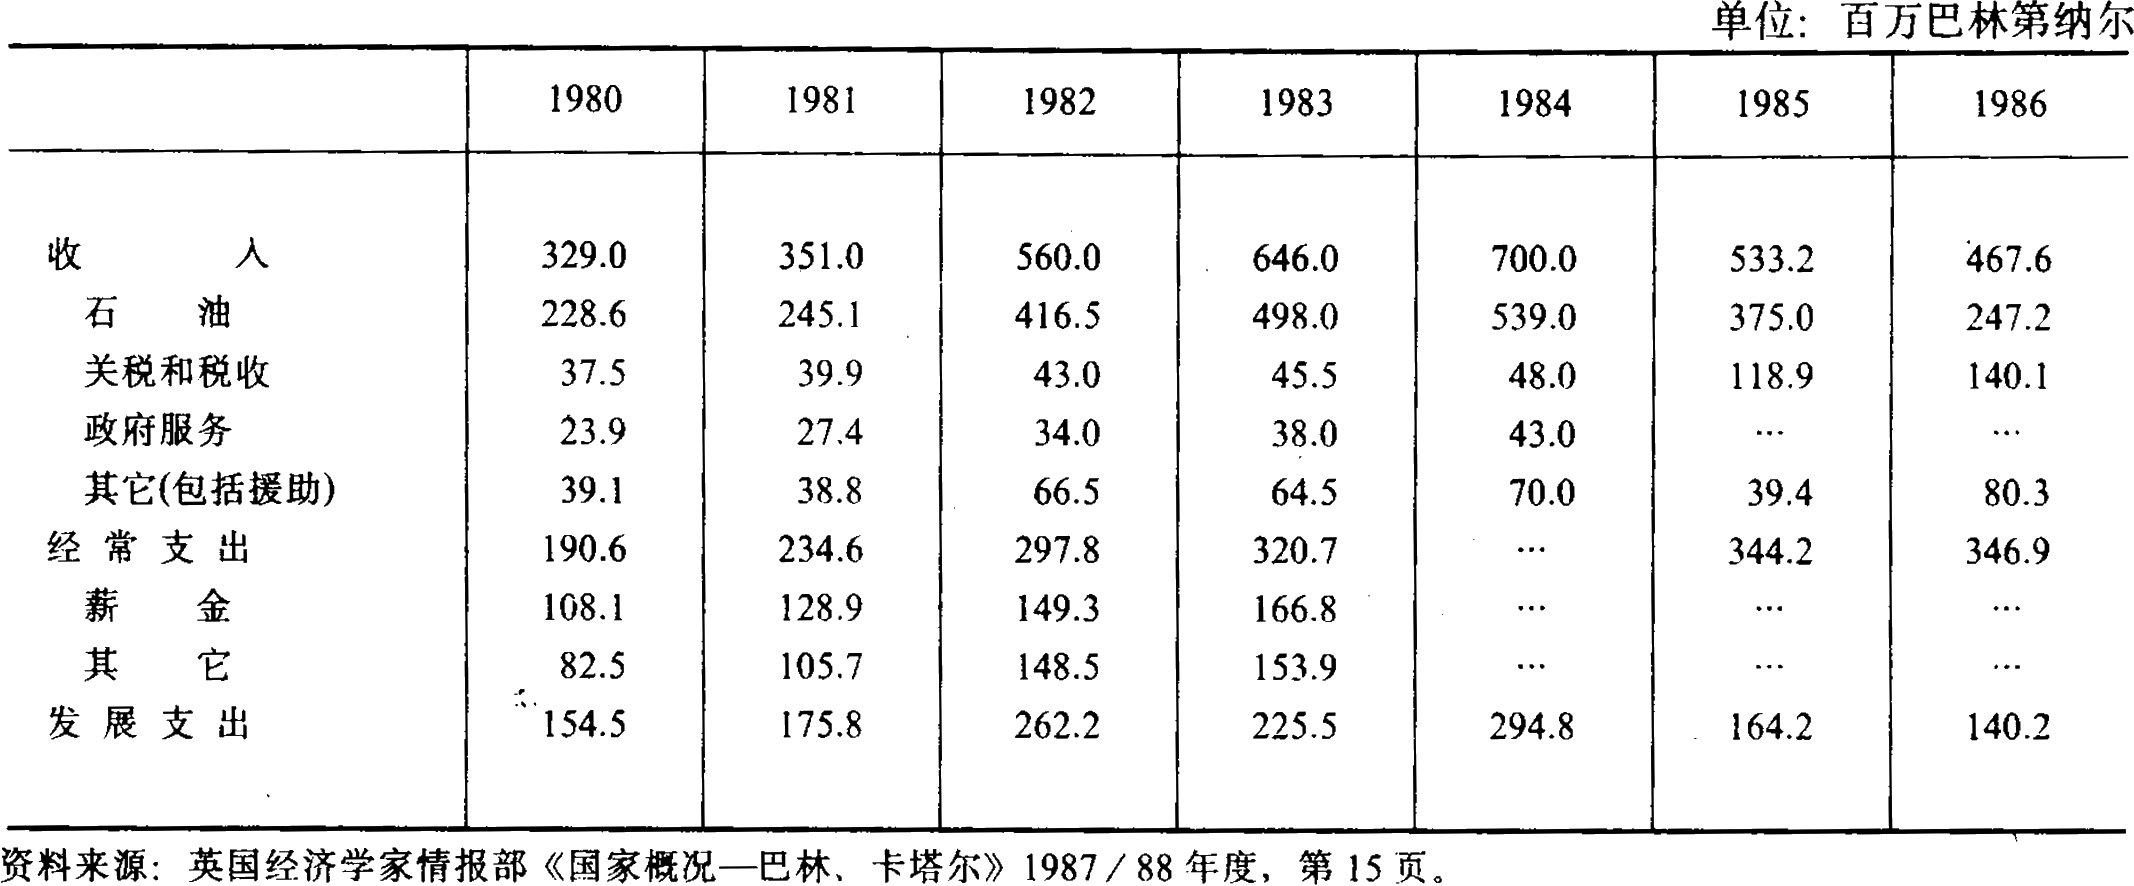 单位：百万巴林第纳尔
1980 1981 1982 1983 1984 1985 1986
收入 329.0 351.0 560.0 646.0 700.0 533.2 467.6
石油 228.6 245.1 416.5 498.0 539.0 375.0 247.2
关税和税收 37.5 39.9 43.0 45.5 48.0 118.9 140.1
政府服务 23.9 27.4 34.0 38.0 43.0 … …
其它(包括援助) 39.1 38.8 66.5 64.5 70.0 39.4 80.3
经常支出 190.6 234.6 297.8 320.7 … 344.2 346.9
薪金 108.1 128.9 149.3 166.8 … … …
其它 82.5 105.7 148.5 153.9 … … …
发展支出 154.5 175.8 262.2 225.5 294.8 164.2 140.2
资料来源：英国经济学家情报部《国家概况—巴林、卡塔尔》1987/88年度，第15页。